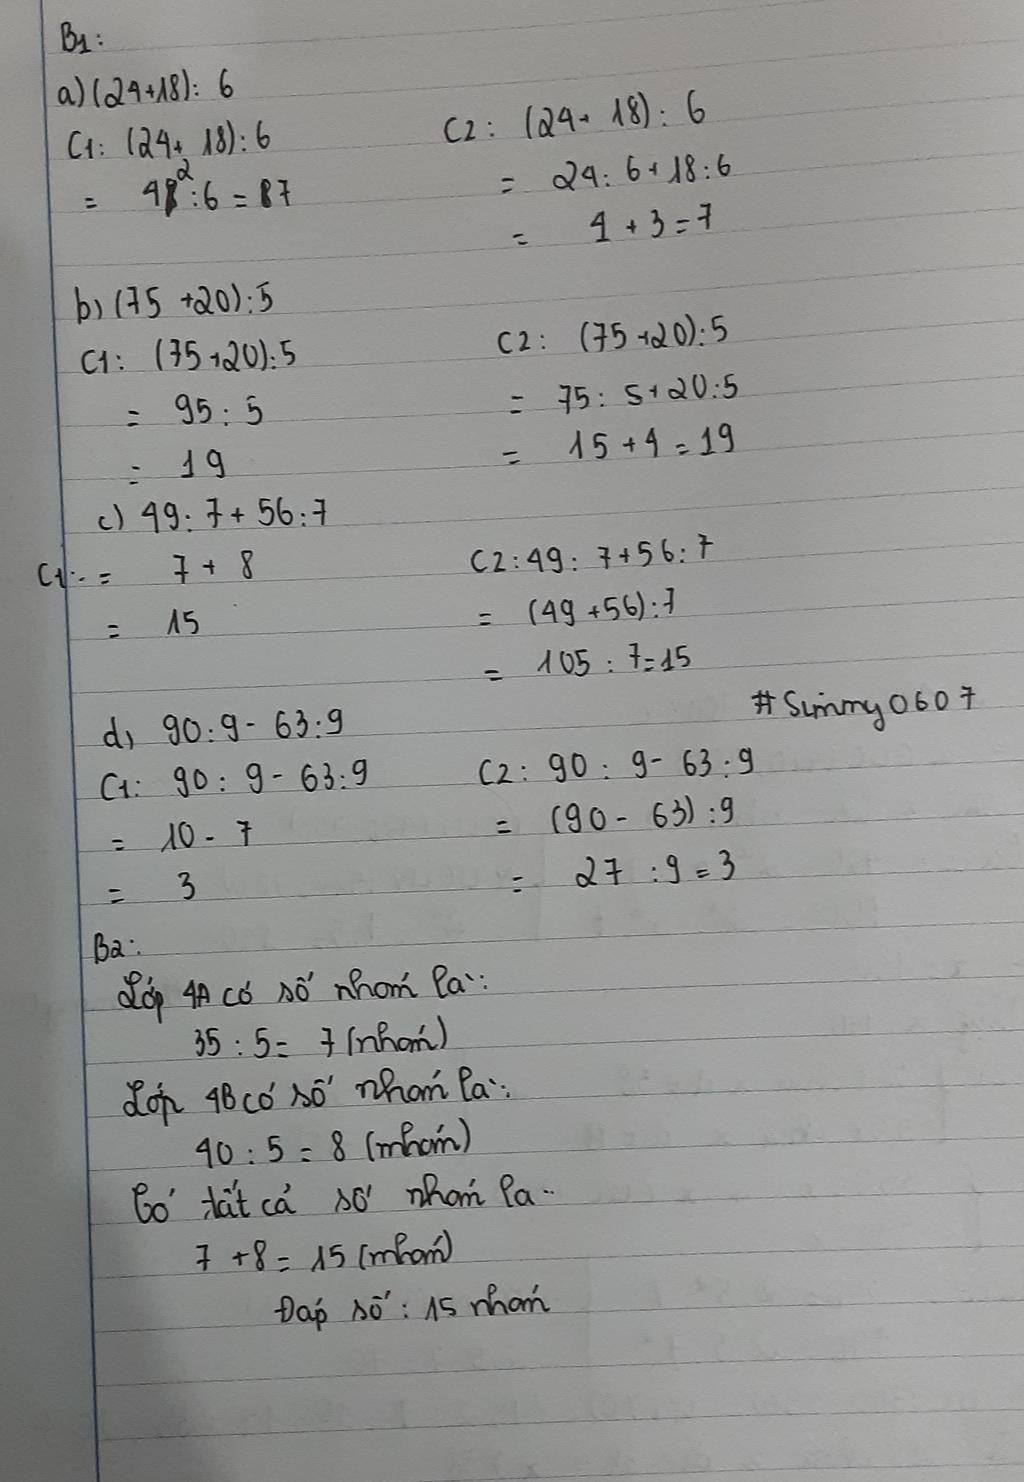 B1:
a) (24+18): 6
C1: (24+ 18): 6
C2: (24+ 18): 6
= 42:6 = 7
= 24: 6+18:6
= 4 + 3 = 7
b) (75 +20): 5
C1: (75+20): 5
C2: (75+20): 5
= 95: 5
= 75: 5+20:5
= 19
= 15+4 = 19
c) 49: 7+ 56:7
C1: = 7+ 8
C2: 49: 7+56: 7
= 15
= (49+56): 7
= 105 : 7=15
#Simmy0607
d) 90:9- 63:9
C1: 90: 9- 63:9
C2: 90: 9- 63:9
= 10- 7
= (90- 63) :9
= 3
= 27 :9 = 3
B2:
Lớp 4A có số nhóm là:
35 : 5= 7 (nhóm)
Lớp 4B có số nhóm là:
40: 5 = 8 (nhóm)
Có tất cả số nhóm là:
7 +8 = 15 (nhóm)
Đáp số: 15 nhóm